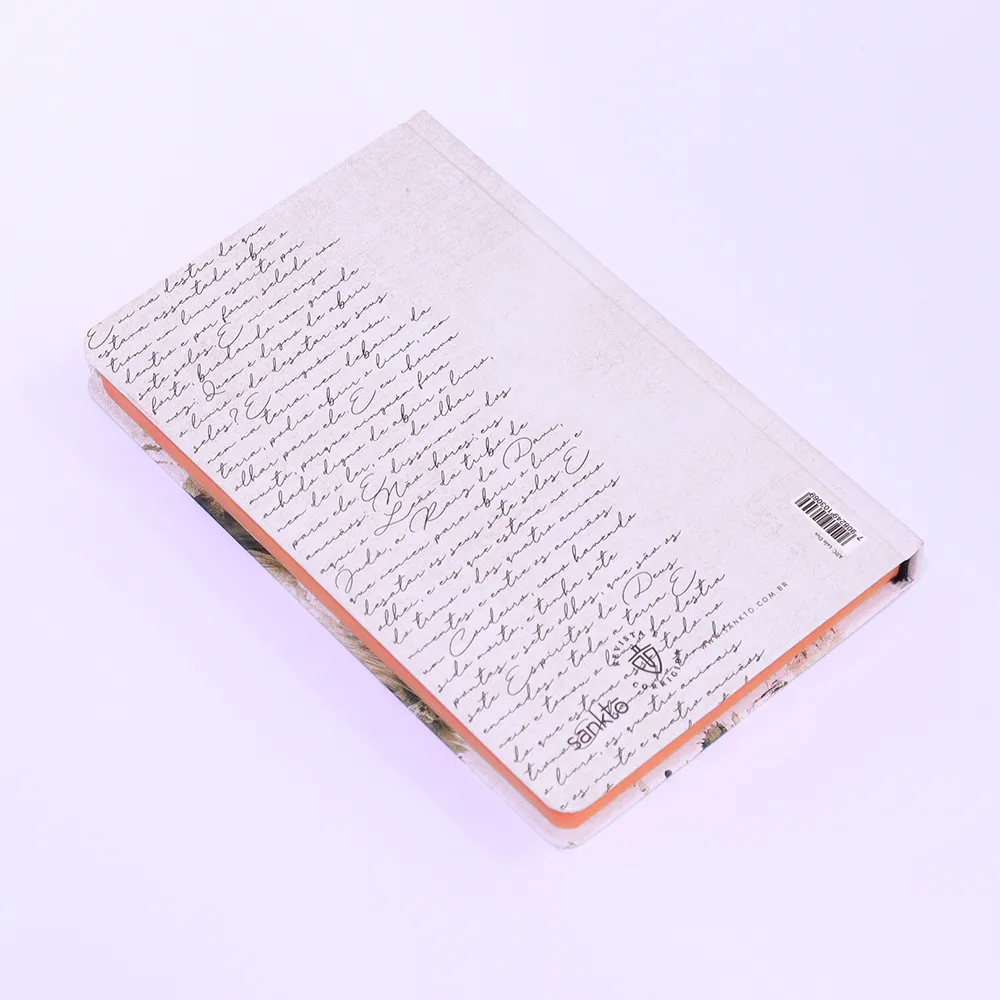 E vi na destra do que
estava assentado sobre o
trono um livro escrito por
dentro e por fora, selado com
sete selos. E vi um anjo
forte, bradando com grande
voz: Quem é digno de abrir
o livro e de desatar os seus
selos? E ninguém no céu,
nem na terra, nem debaixo da
terra, podia abrir o livro, nem
olhar para ele. E eu chorava
muito, porque ninguém fora
achado digno de abrir o livro,
nem de o ler, nem de olhar
para ele. E disse-me um dos
anciãos: Não chores; eis
aqui o Leão da tribo de
Judá, a Raiz de Davi,
que venceu para abrir o livro e
desatar os seus sete selos. E
olhei, e eis que estava no meio
do trono e dos quatro animais
viventes e entre os anciãos
um Cordeiro, como havendo
sido morto, e tinha sete
pontas e sete olhos, que são os
sete Espíritos de Deus
enviados a toda a terra. E
veio e tomou o livro da destra
do que estava assentado no
trono.
o livro, os quatro animais
e os vinte e quatro anciãos
REVISTA
CORRIGIDA
sankto
WWW.SANKTO.COM.BR
ARC